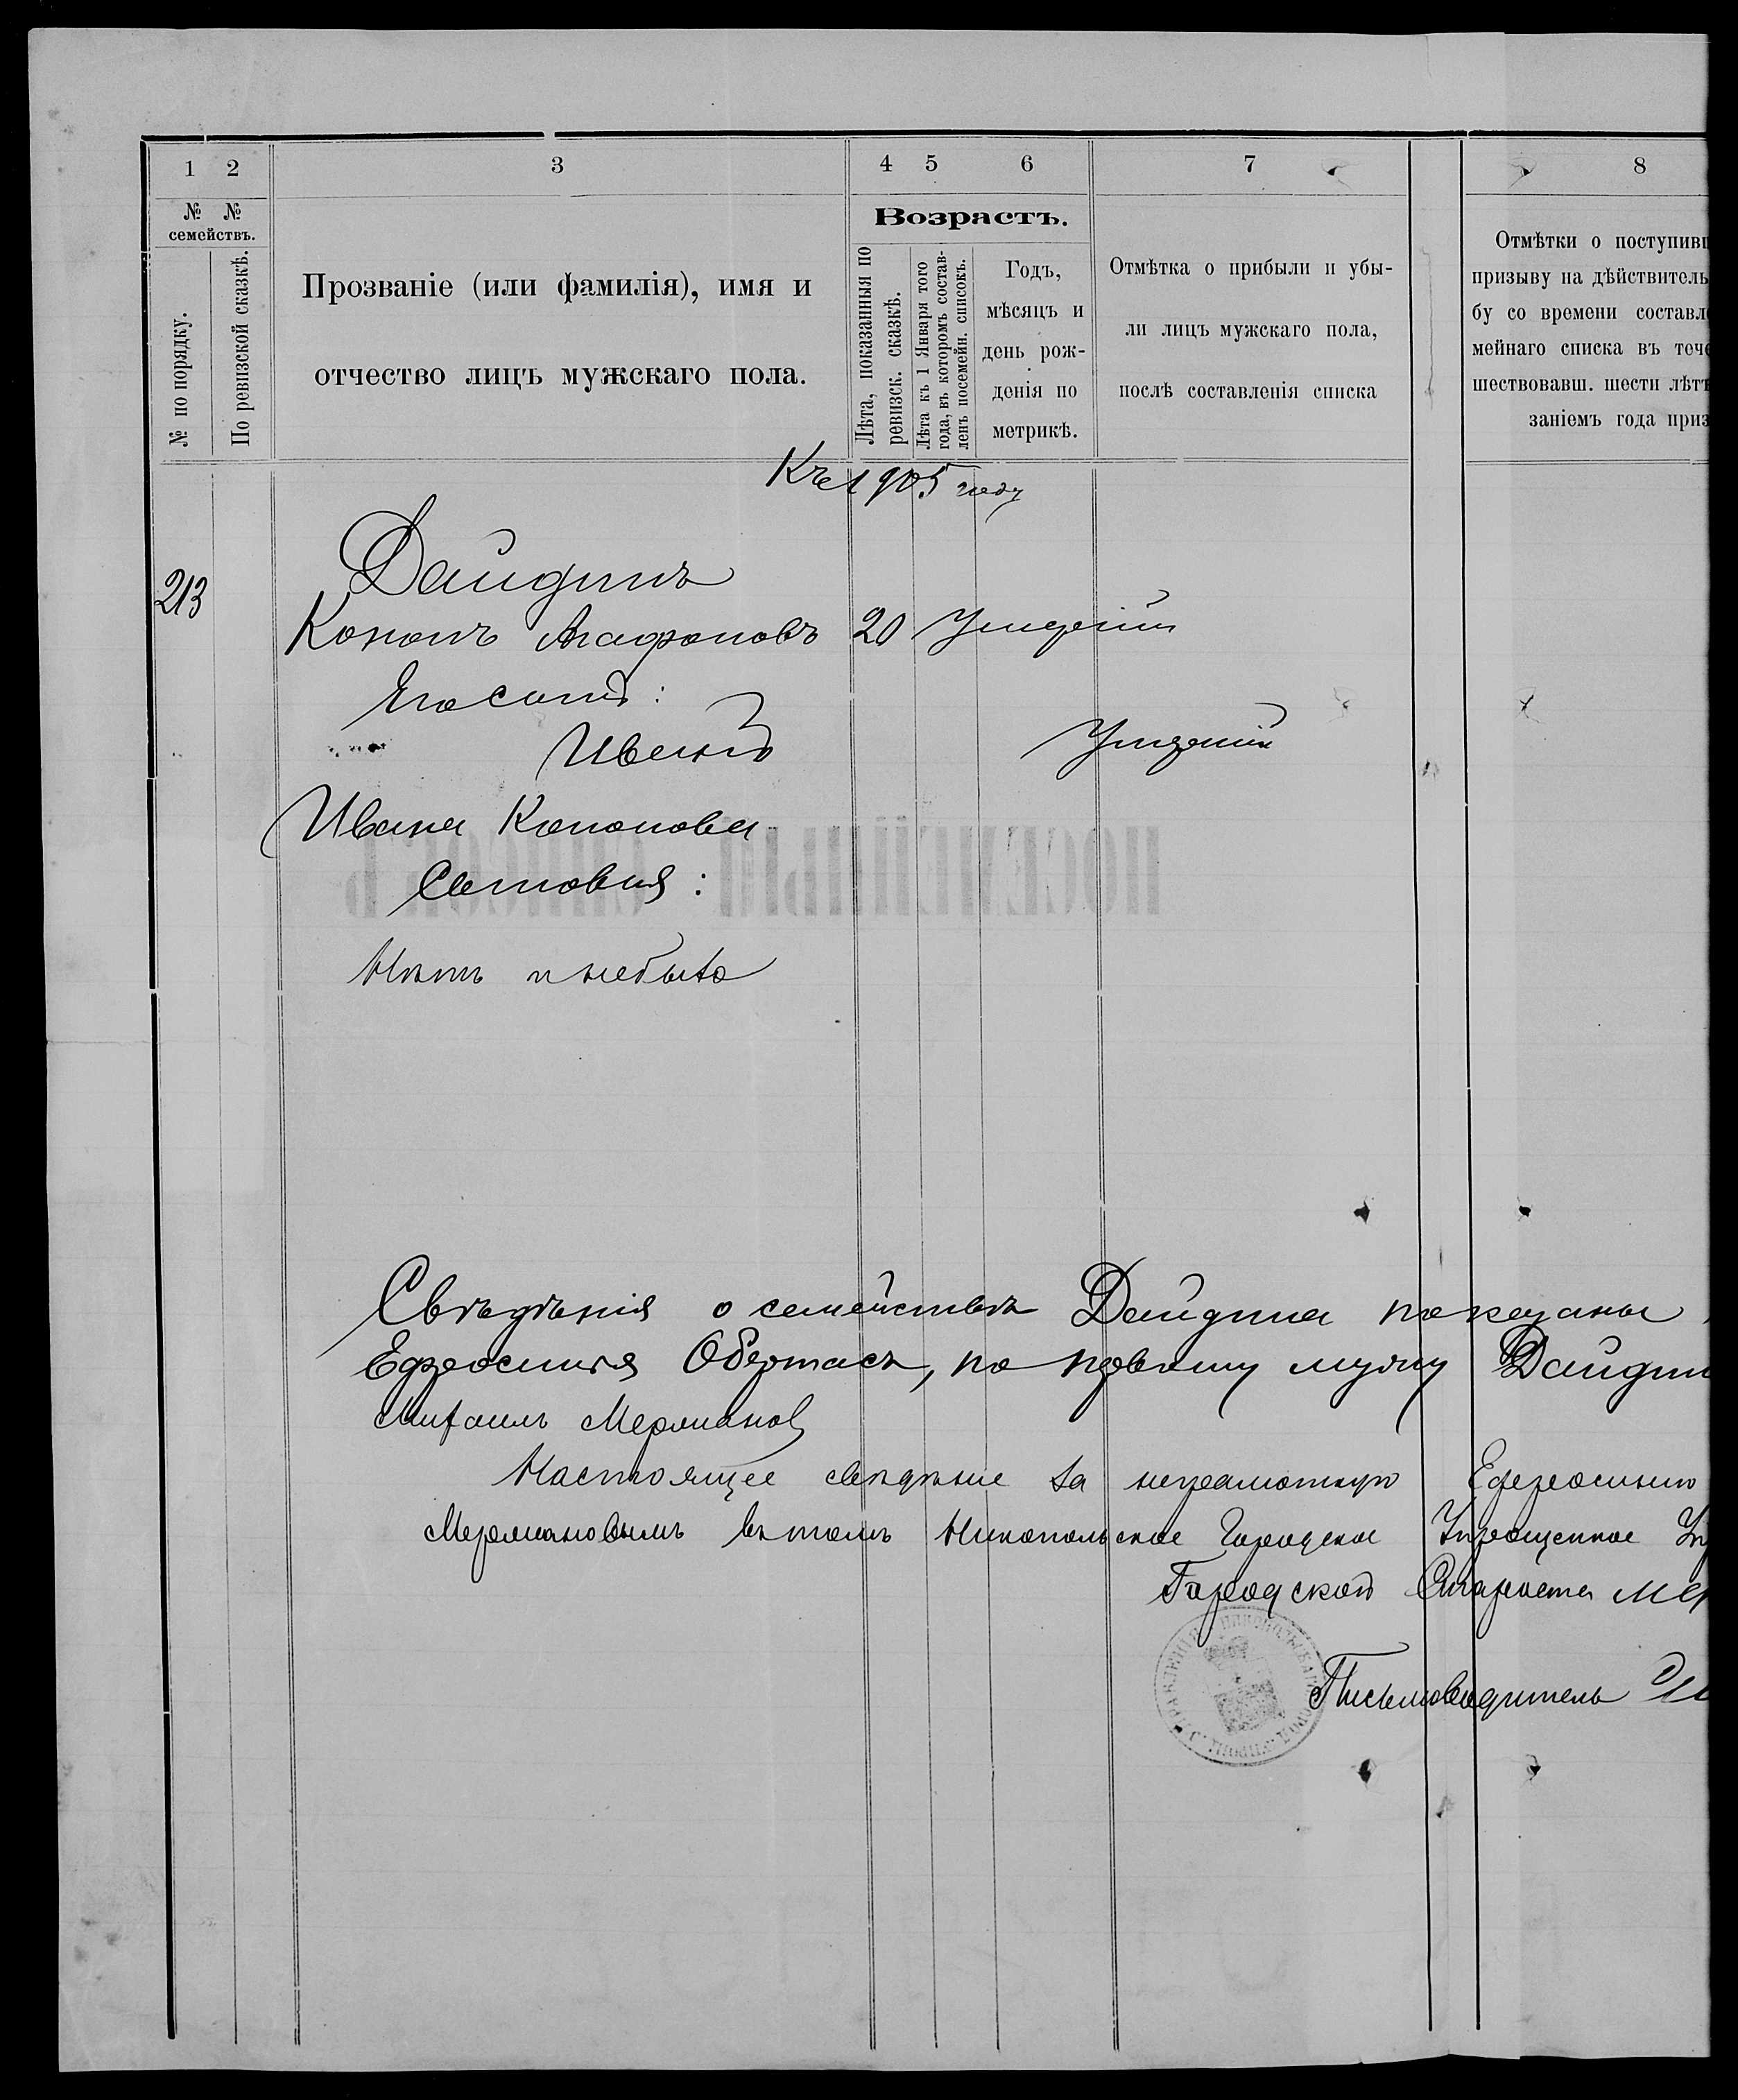 1 2 3 4 5 6 7 8
№ № семействъ.
№ по порядку.
По ревизской сказкѣ.
Прозваніе (или фамилія), имя и
отчество лицъ мужскаго пола.
Возрастъ.
Лѣта, показанныя по
ревизск. сказкѣ.
Лѣта къ 1 Января того
года, въ которомъ состав-
ленъ посемейн. списокъ.
Годъ,
мѣсяцъ и
день рож-
денія по
метрикѣ.
Отмѣтка о прибыли и убы-
ли лицъ мужскаго пола,
послѣ составленія списка
Отмѣтки о поступивш
призыву на дѣйствитель
бу со времени составле
мейнаго списка въ тече
шествовавш. шести лѣтъ
заніемъ года приз
Къ 1905 году
Дайдинъ
213
Кононъ Агафоновъ 20
Его сынъ:
Иванъ
Ивана Кононова
Сыновья:
Нѣтъ и небыло
ПОСЕМЕЙНЫЙ СПИСОКЪ
Свѣдѣнія о семействѣ Дайдина показаны
Ефросинія Обертасъ, по первому мужу Дайдин
Михаилъ Мерманов
Настоящее свѣдѣніе за неграмотную Ефросинію
Мермановымъ въ томъ Никопольское Городское Упрощенное Уп
Городской Староста
Письмоводитель